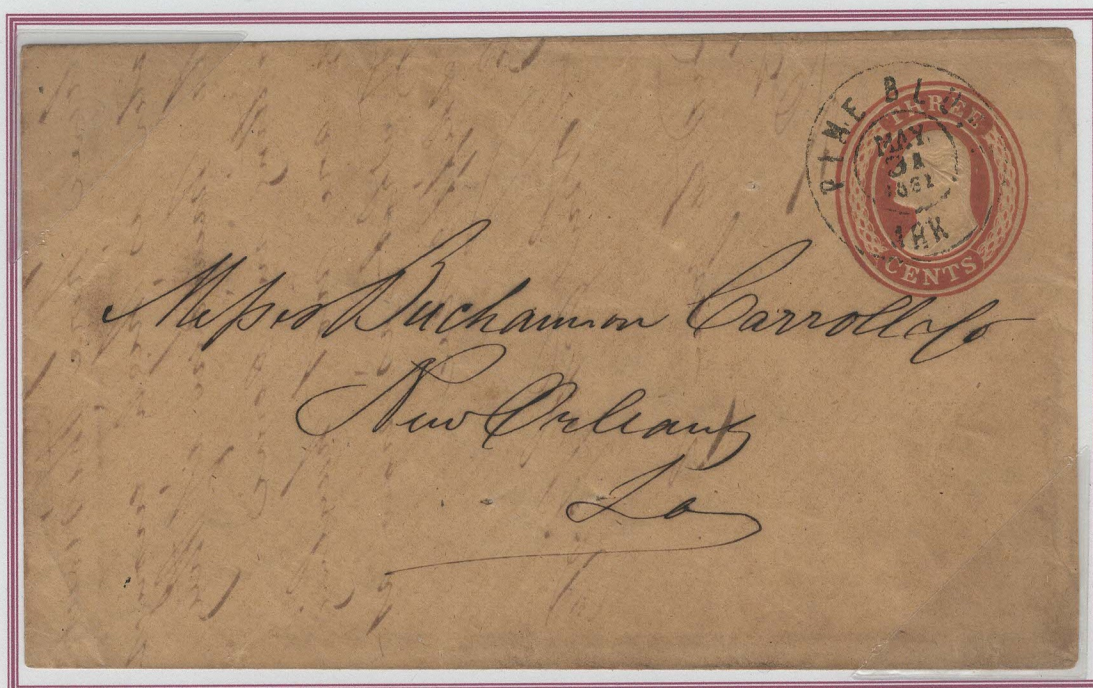 PINE BLUFF
MAY
31
1861
ARK
THREE
CENTS
Messrs Buchannon Carroll & Co
New Orleans
La